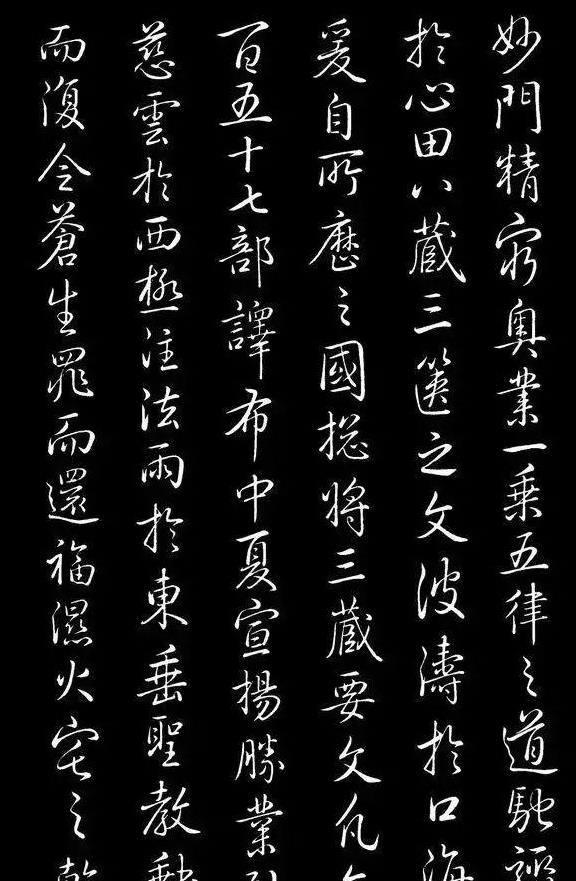 妙門精窮奧業一乘五律之道馳驟
於心田八藏三篋之文波濤於口海
爰自所歷之國總將三藏要文凡
百五十七部譯布中夏宣揚勝業
慈雲於西極注法雨於東垂聖教
而復全蒼生罪而還福濕火宅之乾